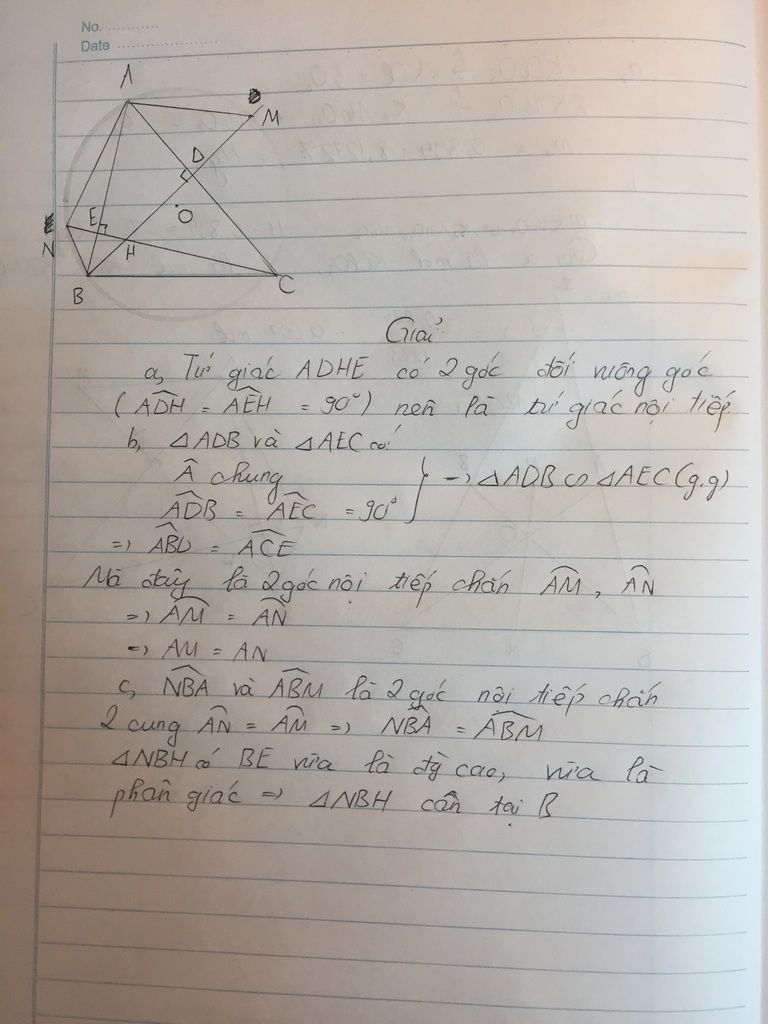 No. ............
Date .......................
A
M
D
O
E
N
H
B
C
Giải
a, Tứ giác ADHE có 2 góc đối vuông góc
(ADH = AEH = 90°) nên là tứ giác nội tiếp
b, △ADB và △AEC có:
Â chung
ADB = AEC = 90° } => △ADB ∽ △AEC (g.g)
=> ABD = ACE
Mà đây là 2 góc nội tiếp chắn AM, AN
=> AM = AN
=> AM = AN
c, NBA và ABM là 2 góc nội tiếp chắn
2 cung AN = AM => NBA = ABM
△NBH có BE vừa là đg cao, vừa là
phân giác => △NBH cân tại B